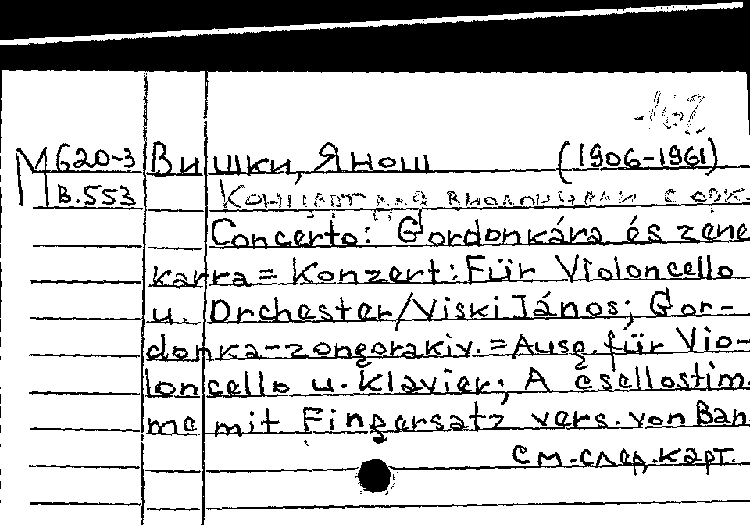 -162
М620-3 Вишки, Янош (1906-1961)
В.553 Концерт для виолончели с орк.
Concerto: Gordonkára és zene
karra = Konzert: Für Violoncello
u. Orchester/Viski János; Gor-
donka-zongorakiv. = Ausg. für Vio-
loncello u. Klavier; A csellostim.
me mit Fingersatz vers. von Ban
см. след. карт.